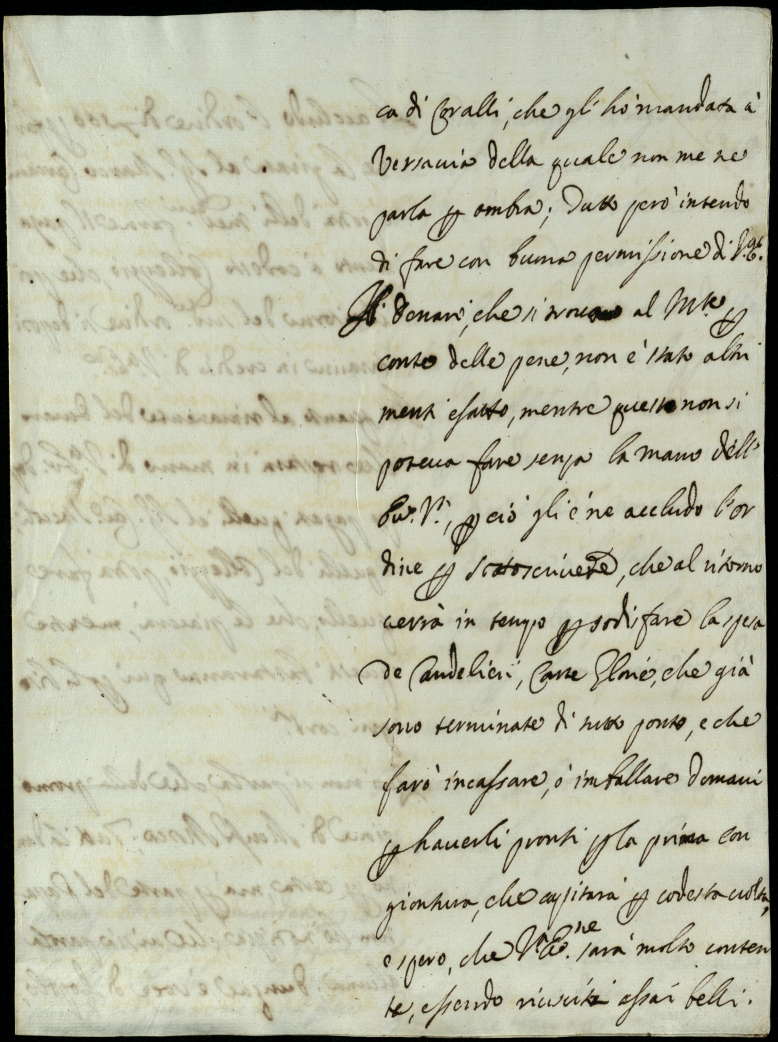 ca di Coralli, che gl' hò mandata à
Versavia della quale non me ne
parla p ombra; Tutto però intendo
di fare con buona permissione di V. E.
Il denari, che si trovano al Mte p
conto delle pene, non è stato altri
menti esatto, mentre questo non si
poteva fare senza la mano dell'
p ciò gli é ne accludo l'or
dine p sotoscrivere, che al ritorno
verrà in tempo p sodisfare la spesa
de Candelieri, Carte Glorie, che già
sono terminate di tutto ponto, e che
farò incassare, ò imballare domani
p haverli pronti p la prima con
giontura, che capitarà p codesta volta,
e spero, che V. E. ne sarà molto conten
te, essendo riusciti assai belli.